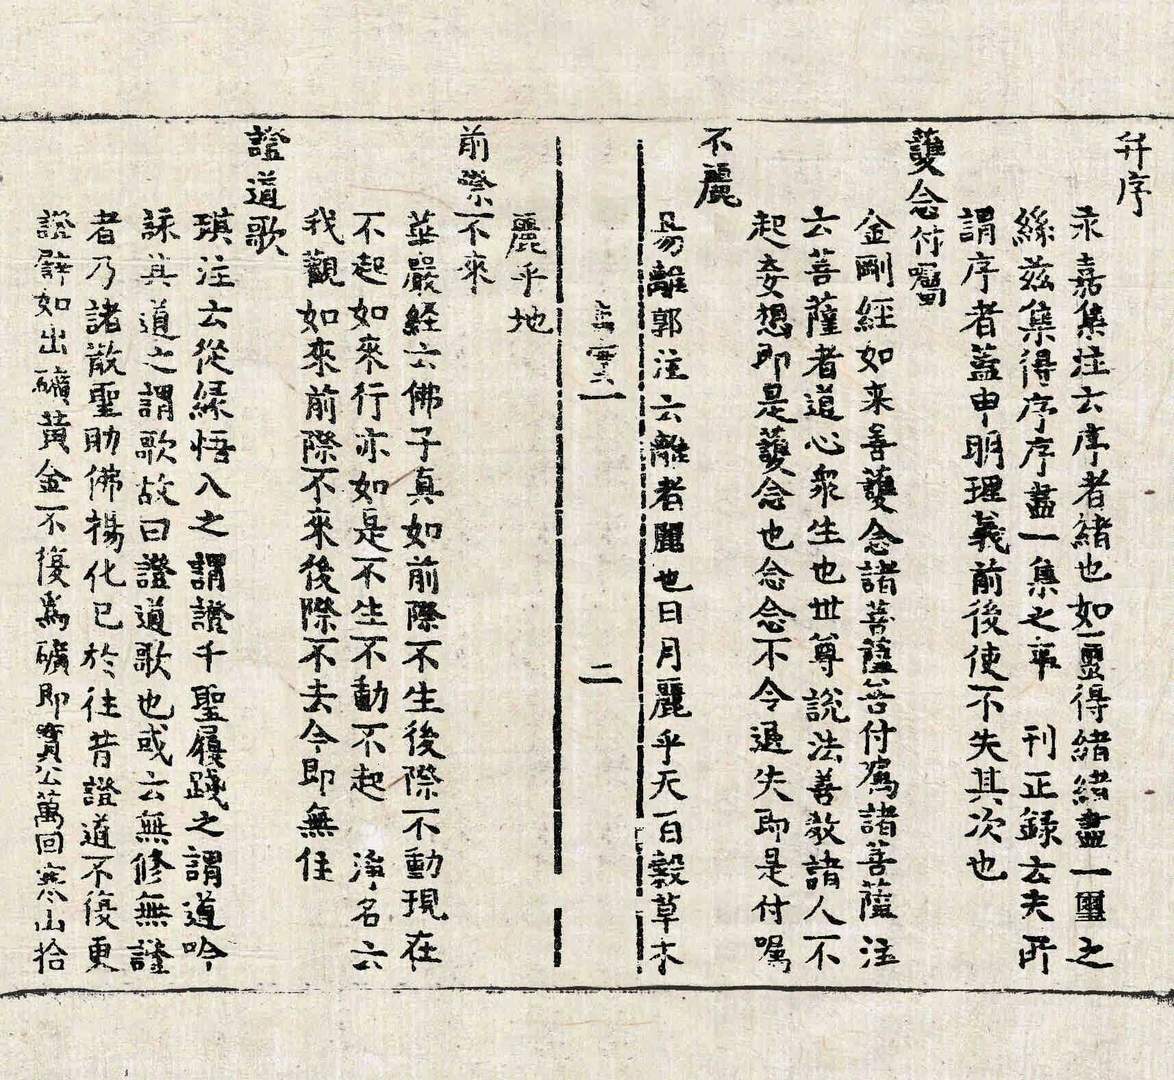 并序
永嘉集注云序者緒也如璽得緒緒盡一璽之
絲茲集得序序盡一集之事 刊正錄云夫所
謂序者蓋申明理義前後使不失其次也
護念付囑
金剛經如来善護念諸菩薩善付囑諸菩薩注
云菩薩者道心眾生也世尊說法善教諸人不
起妄想即是護念也念念不令退失即是付囑
不麗
易離郭注云離者麗也日月麗乎天百穀草木
二
麗乎地
前際不來
華嚴經云佛子真如前際不生後際不動現在
不起如來行亦如是不生不動不起 淨名云
我觀如來前際不來後際不去今即無住
證道歌
琪注云從緣悟入之謂證千聖履踐之謂道吟
詠其道之謂歌故曰證道歌也或云無修無證
者乃諸散聖助佛揚化已於往昔證道不復更
證譬如出礦黃金不復為礦即寶公萬回寒山拾